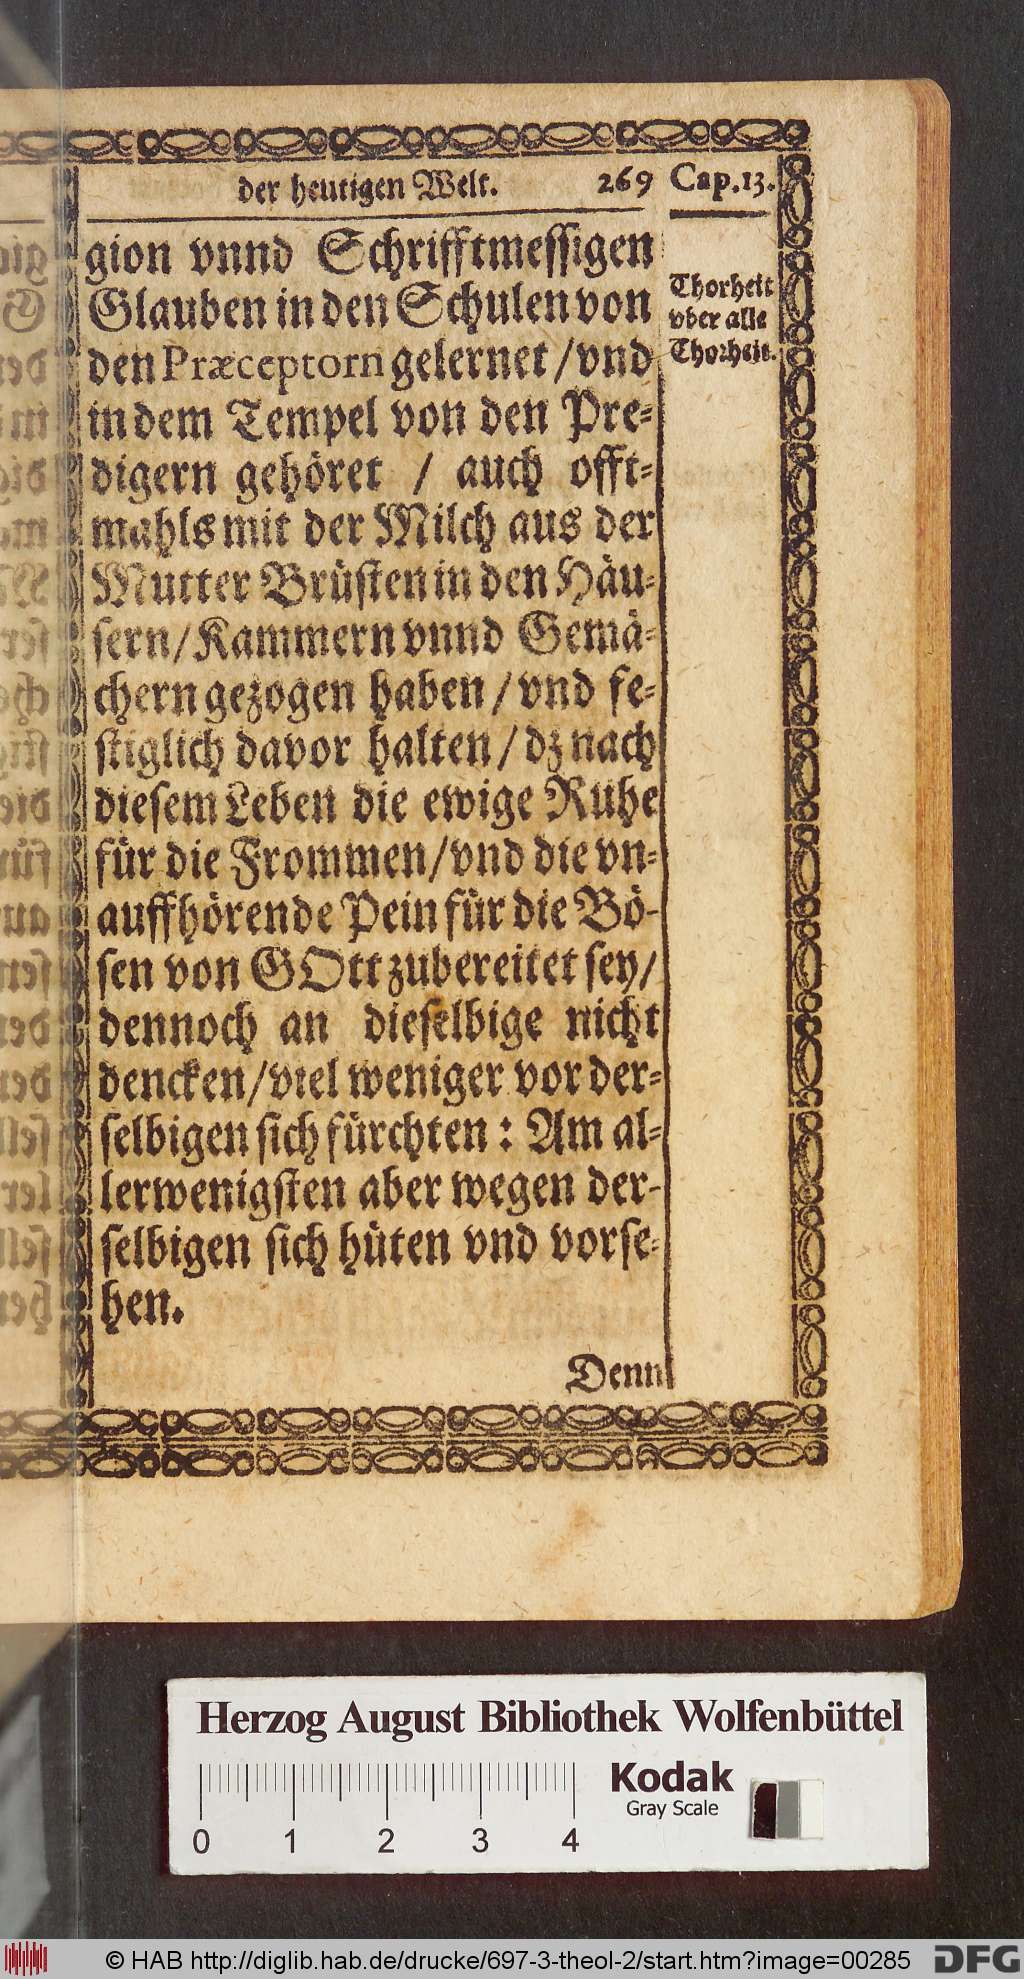 der heutigen Welt. 269 Cap.13.
gion vnnd Schrifftmessigen
Glauben in den Schulen von
den Præceptorn gelernet / vnd
in dem Tempel von den Pre-
digern gehöret / auch offt-
mahls mit der Milch aus der
Mutter Brüsten in den Häu-
sern / Kammern vnnd Gemä-
chern gezogen haben / vnd fe-
stiglich davor halten / dz nach
diesem Leben die ewige Ruhe
für die Frommen / vnd die vn-
auffhörende Pein für die Bö-
sen von GOtt zubereitet sey /
dennoch an dieselbige nicht
dencken / viel weniger vor der-
selbigen sich fürchten : Am al-
lerwenigsten aber wegen der-
selbigen sich hüten vnd vorse-
hen.
Denn
Thorheit
vber alle
Thorheit.
Herzog August Bibliothek Wolfenbüttel
Kodak
Gray Scale
0 1 2 3 4
© HAB http://diglib.hab.de/drucke/697-3-theol-2/start.htm?image=00285
DFG